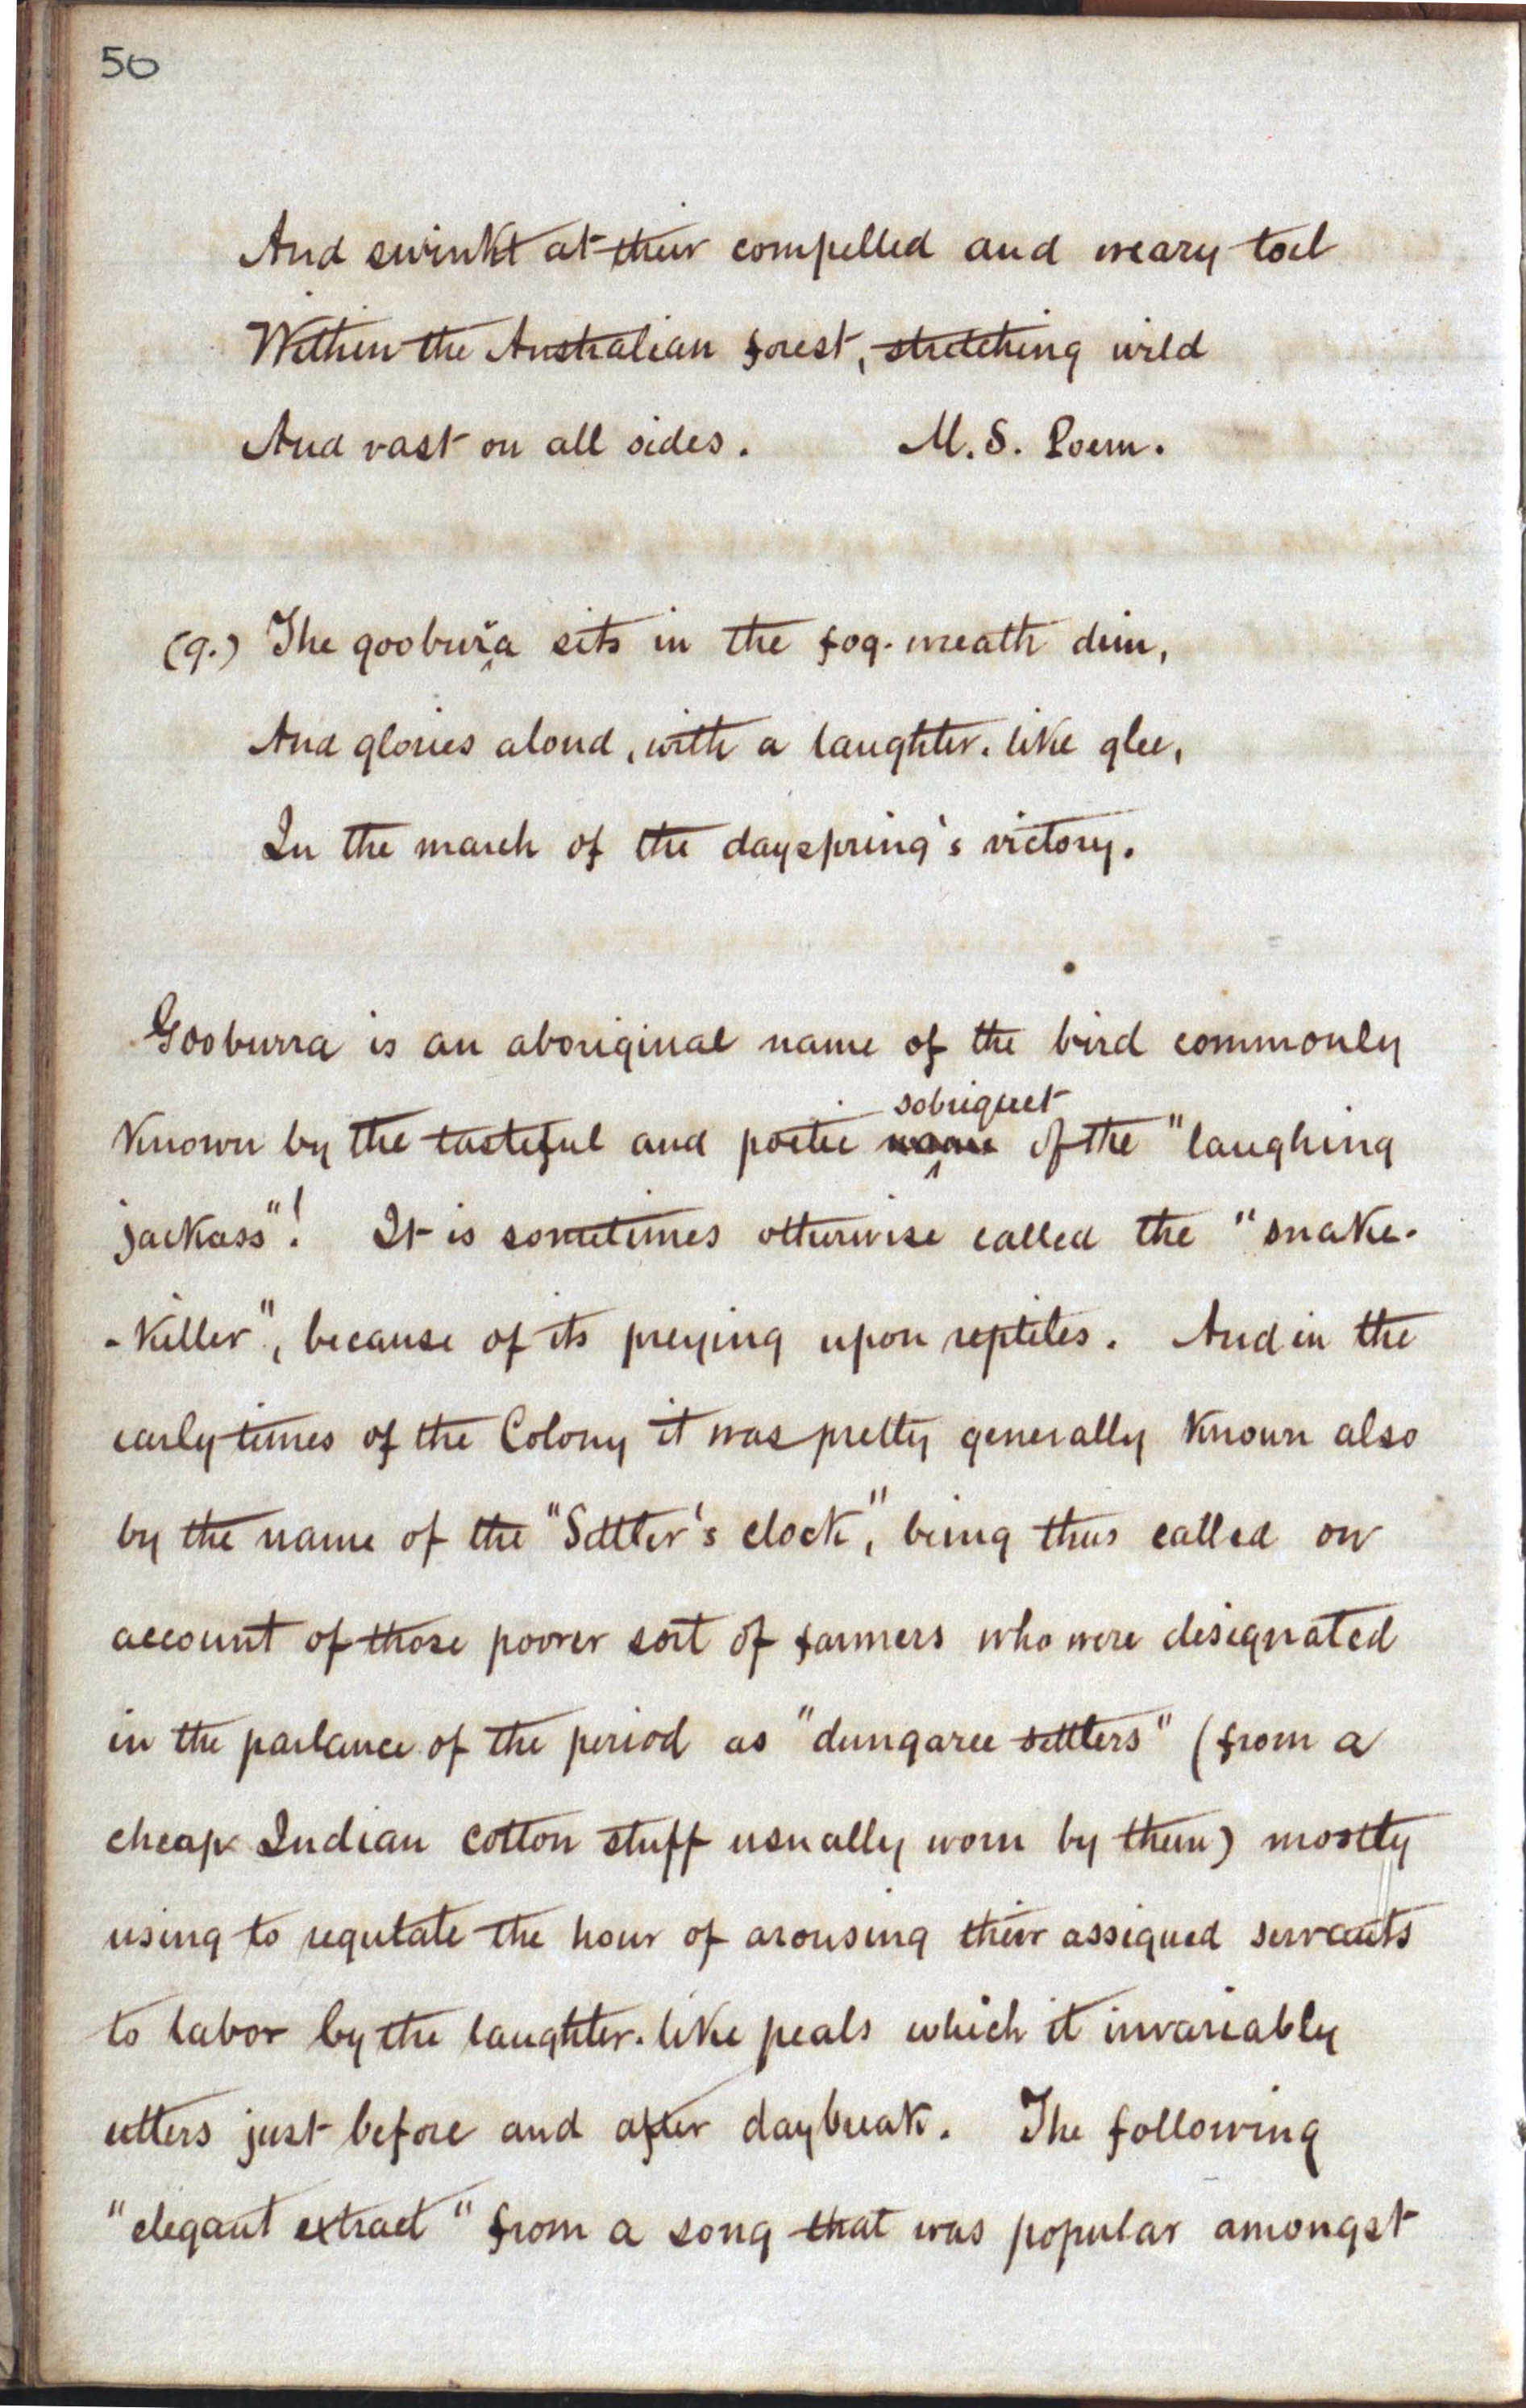 50
And swinkt at their compelled and weary toil
Within the Australian forest, stretching wild
And vast on all sides. M.S. Poem.
(9.) The gooburra sits in the fog-wreath dim,
And glories aloud, with a laughter-like glee,
In the march of the dayspring's victory.
Gooburra is an aboriginal name of the bird commonly
sobriquet
known by the tasteful and poetic name of the "laughing
jackass"! It is sometimes otherwise called the "snake-
-killer", because of its preying upon reptiles. And in the
early times of the Colony it was pretty generally known also
by the name of the "Settler's clock", being thus called on
account of those poorer sort of farmers who were designated
in the parlance of the period as "dungaree settlers" (from a
cheap Indian cotton stuff usually worn by them) mostly
using to regulate the hour of arousing their assigned servants
to labor by the laughter-like peals which it invariably
utters just before and after daybreak. The following
"elegant extract" from a song that was popular amongst